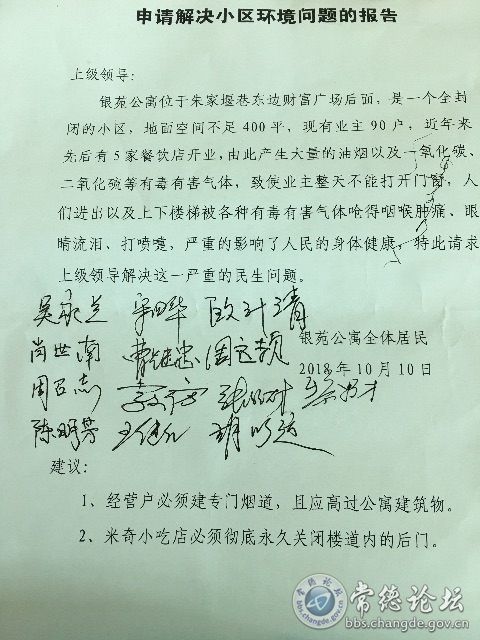 申请解决小区环境问题的报告
上级领导：
银苑公寓位于朱家堰巷东边财富广场后面，是一个全封
闭的小区，地面空间不足400平，现有业主90户，近年来
先后有5家餐饮店开业，由此产生大量的油烟以及一氧化碳、
二氧化硫等有毒有害气体，致使业主整天不能打开门窗，人
们进出以及上下楼梯被各种有毒有害气体呛得咽喉肿痛、眼
睛流泪、打喷嚏，严重的影响了人民的身体健康，特此请求
上级领导解决这一严重的民生问题。
银苑公寓全体居民
肖世南
2018年10月10日
陈明芳
建议：
1、经营户必须建专门烟道，且应高过公寓建筑物。
2、米奇小吃店必须彻底永久关闭楼道内的后门。
常德论坛
bbs.changde.gov.cn